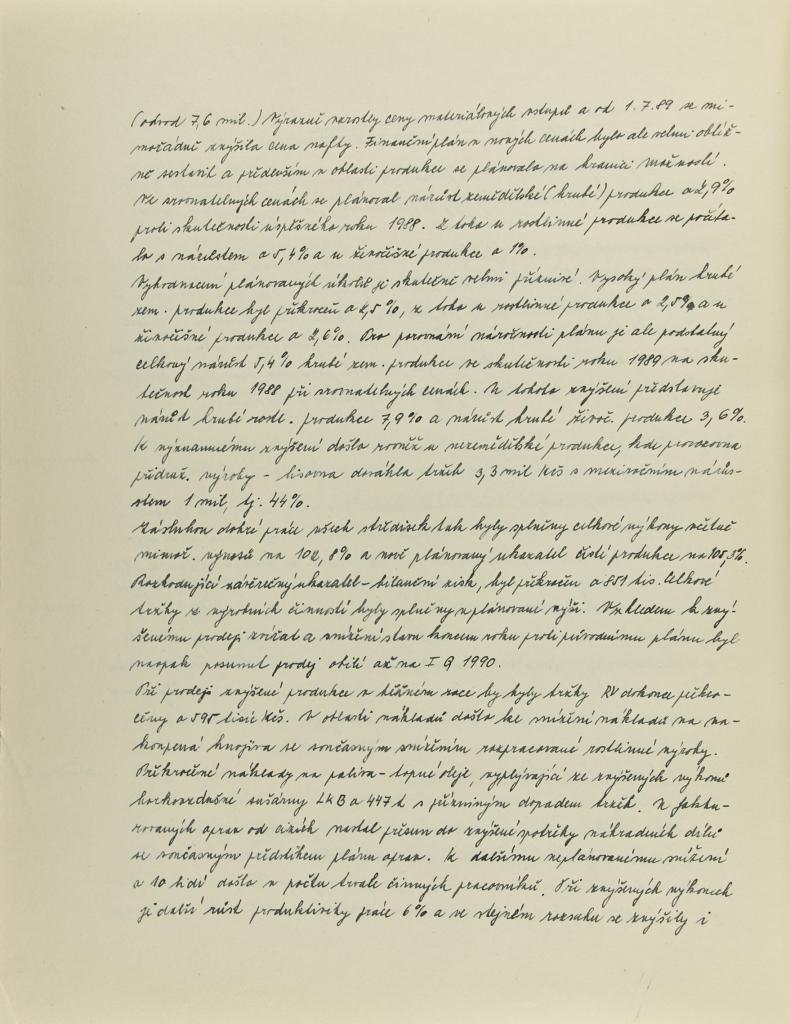 (odvod 7,6 mil.) Výrazně vzrostly ceny materiálových vstupů a od 1.7.89 se mi-
mořádně zvýšila cena nafty. Finanční plán v nových cenách bylo ale velmi obtíž-
né sestavit a především v oblasti produkce se plánovalo na hranici možností.
Ve srovnatelných cenách se plánoval nárůst zemědělské (hrubé) produkce o 2,9%
proti skutečnosti úspěšného roku 1988. Z toho u rostlinné produkce se počíta-
lo s nárůstem o 5,4% a u živočišné produkce o 1%.
Vyhodnocení plánovaných úkolů je skutečně velmi příznivé. Vysoký plán hrubé
zem. produkce byl překročen o 2,5%, z toho u rostlinné produkce o 2,5% a u
živočišné produkce o 2,6%. Pro porovnání náročnosti plánu je ale podstatný
celkový nárůst 5,4% hrubé zem. produkce ve skutečnosti roku 1989 na sku-
tečnost roku 1988 při srovnatelných cenách. U tohoto zvýšení představuje
nárůst hrubé rostl. produkce 7,9% a nárůst hrubé živoč. produkce 3,6%.
K významnému zvýšení došlo rovněž u nezemědělské produkce, kde provozovna
přidruž. výroby - lisovna dosáhla tržeb 3,3 mil Kčs s meziročním nárůs-
stem 1 mil, tj. 44%.
Zásluhou dobré práce všech středisek tak byly splněny celkové výkony včetně
mimoř. výnosů na 102,8% a nově plánovaný ukazatel čisté produkce na 105,3%.
Rozhodující závěrečný ukazatel - bilanční zisk, byl překročen o 851 tis. Celkové
tržby z výrobních činností byly splněny v plánované výši. Vzhledem k zvý-
šenému prodeji zvířat a snížení stavu koncem roku proti původnímu plánu byl
naopak posunut prodej obilí až na I Q 1990.
Při prodeji zvýšené produkce v běžném roce by byly tržby RV dokonce překro-
čeny o 595 tisíc Kčs. V oblasti nákladů došlo ke snížení nákladů na na-
koupená hnojiva se současným snížením rozpracované rostlinné výroby.
Překročené náklady na paliva - topné oleje, vyplývající ze zvýšených výkonů
horkovzdušné sušárny LKB o 447 t s příznivým dopadem tržeb. U faktu-
rovaných oprav od cizích nastal přesun do zvýšené potřeby náhradních dílů
se současným předstihem plánu oprav. K dalšímu neplánovanému snížení
o 10 lidí došlo v počtu trvale činných pracovníků. Při zvýšených výkonech
je další růst produktivity práce 6% a ve stejném rozsahu se zvýšily i